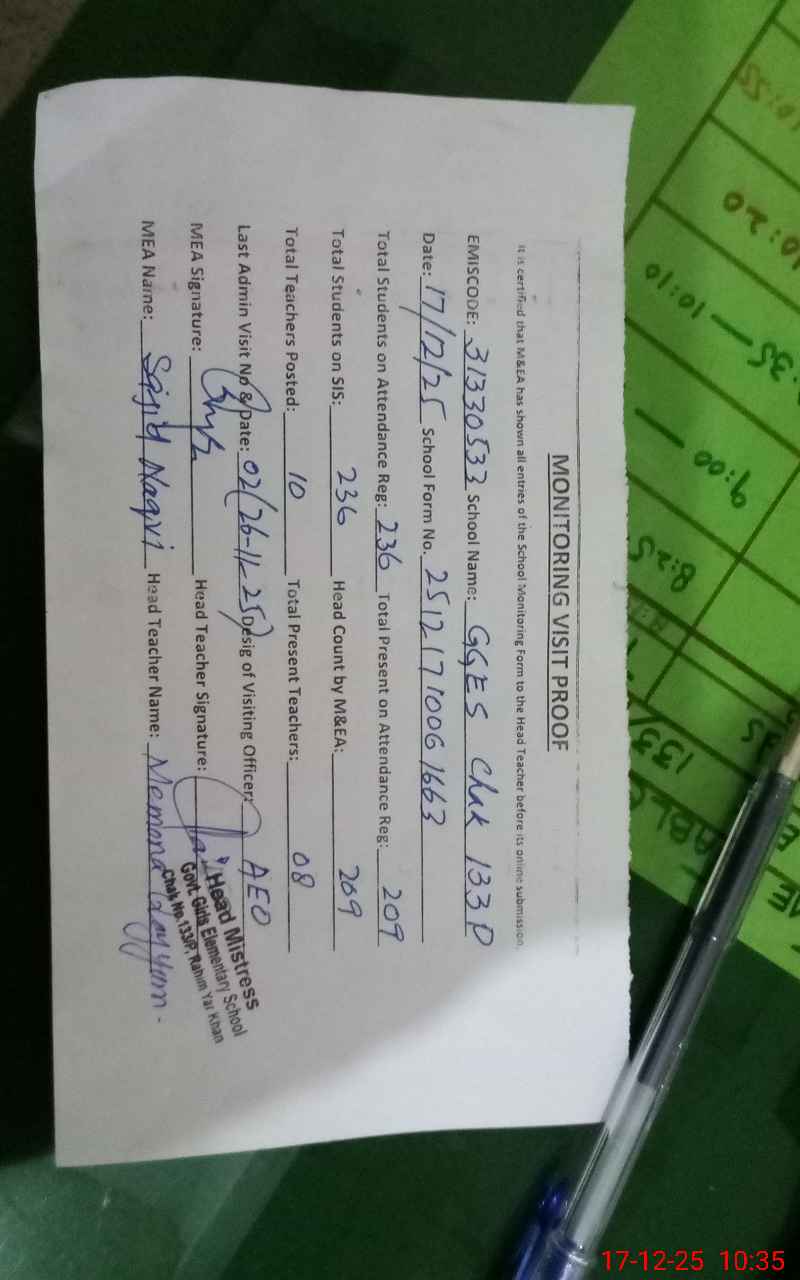 MONITORING VISIT PROOF
It is certified that M&EA has shown all entries of the School Monitoring Form to the Head Teacher before its online submission.
EMISCODE: 31330532 School Name: GGES Chak 133P
Date: 17/12/25 School Form No. 2512171006 1663
Total Students on Attendance Reg: 236 Total Present on Attendance Reg: 209
Total Students on SIS: 236 Head Count by M&EA: 209
Total Teachers Posted: 10 Total Present Teachers: 08
Last Admin Visit No & Date: 02(26-11-25) Desig of Visiting Officer: AEO
MEA Signature: Head Teacher Signature:
MEA Name: Sajid Naqvi Head Teacher Name: Memona
Head Mistress
Govt. Girls Elementary School
Chak No.133/P, Rahim Yar Khan
10:20
.35 — 10:10
9:00 —
8:25
133/
17-12-25 10:35